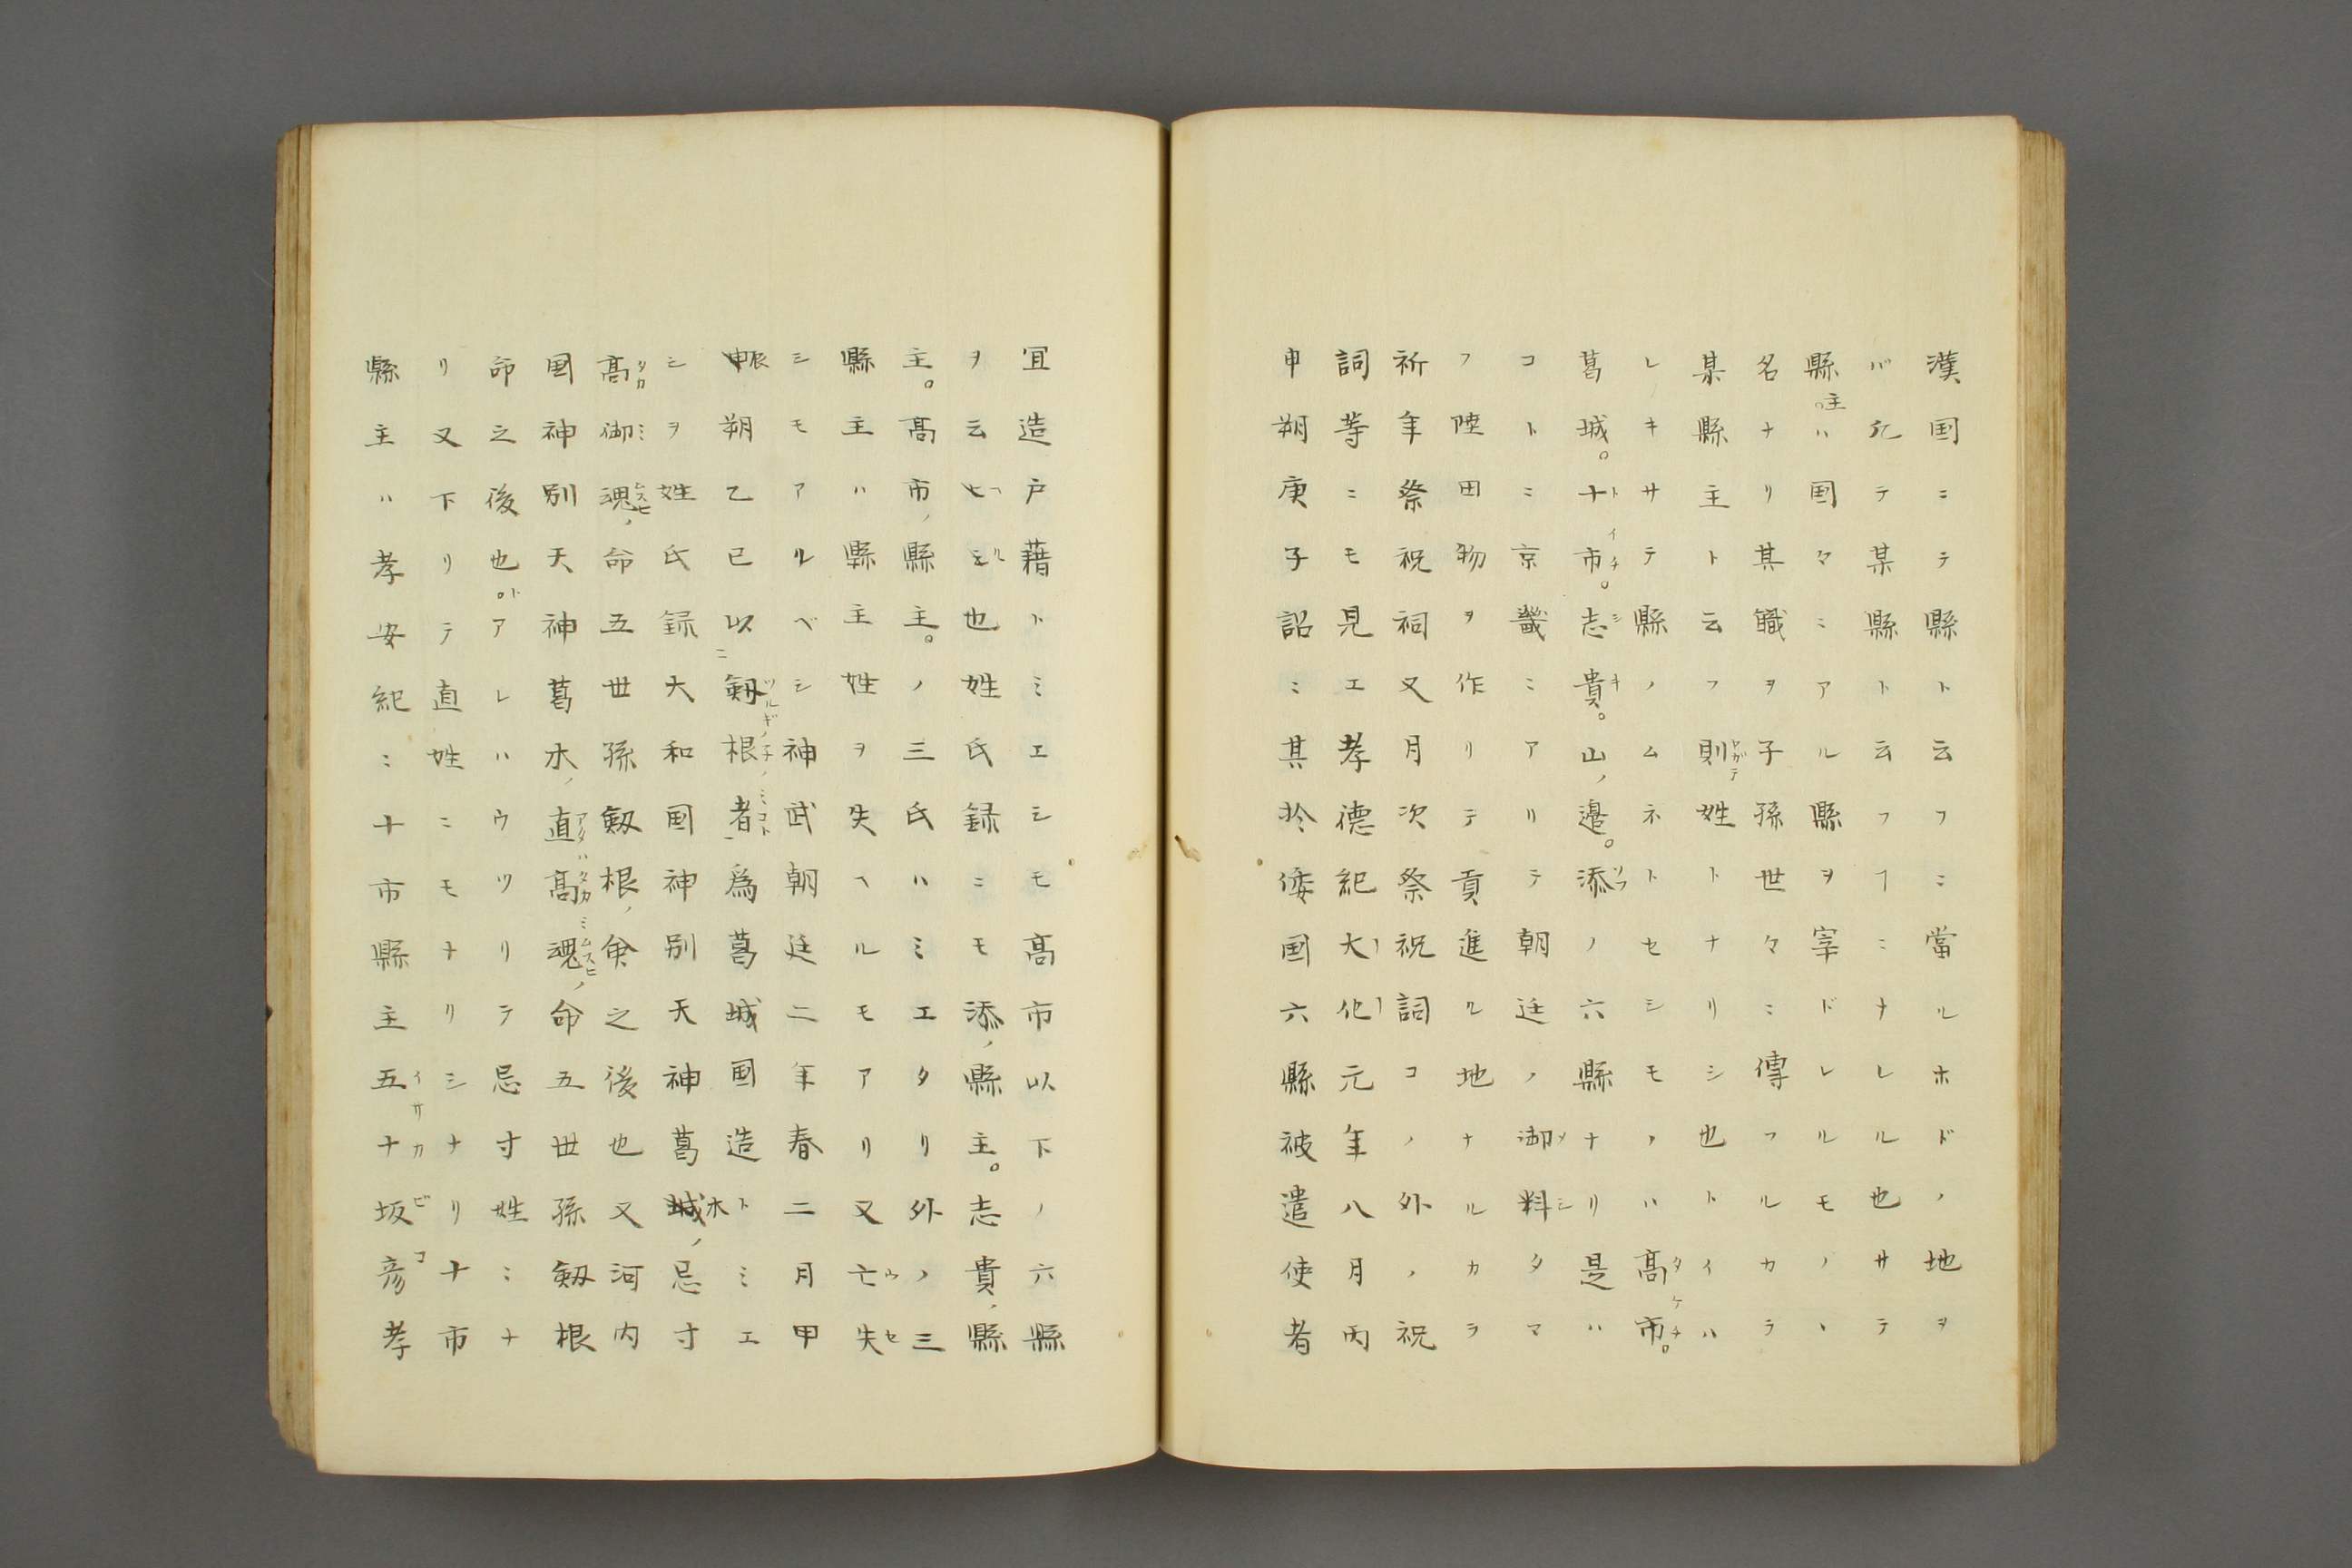 漢国ニテ縣ト云フニ當ルホドノ地ヲ
バ凡テ某縣ト云フヿニナレルル也サテ
縣主ハ国々ニアル縣ヲ宰ドレルモノヽ
名ナリ其職ヲ子孫世々ミ傳フルカラ
某縣主ト云フ則ヤガテ姓トナリシ也トイハ
レキサテ縣ノムネトセシモノハ高タケ市チ。
葛城。十ト市イチ。志シ貴キ。山ノ邉。添ソフノ六縣ナリ是ハ
コトニ京畿ニアリテ朝廷ノ御ヲ料シタマ
フ陸田物ヲ作リテ貢進ル地ナルカラ
祈年祭祝祠又月次祭祝詞コノ外ノ祝
詞等ニモ見エ孝德紀大化元年八月丙
申朔庚子詔ニ其於倭国六縣被遣使者
宜造戸藉トミエシモ高市以下ノ六縣
ヲ云ヘル也姓氏録ニモ添ノ縣主。志貴ノ縣
主。高市ノ縣主。ノ三氏ハミエタリ外ノ三
縣主ハ縣主姓ヲ失ヘルモアリ又亡ウ失セ
シモアルベシ神武朝廷二年春二月甲
辰朔乙巳以ニ剱ツルギノ根チノ者ミコト爲葛城国造トミエ
シヲ姓氏録大和国神別天神葛木ノ忌寸
高タカ御ミ魂ムスヒノ命五世孫剱根ノ命之後也又河内
国神別天神葛木ノ直アタハ高タカミ魂ムスヒノ命五世孫剱根
命之後也。トアレハウツリテ忌寸姓ミナ
リ又下リテ直姓ニモナリシナリ十市
縣主ハ孝安紀ニ十市縣主五イサ十カ坂ビ彦コ孝